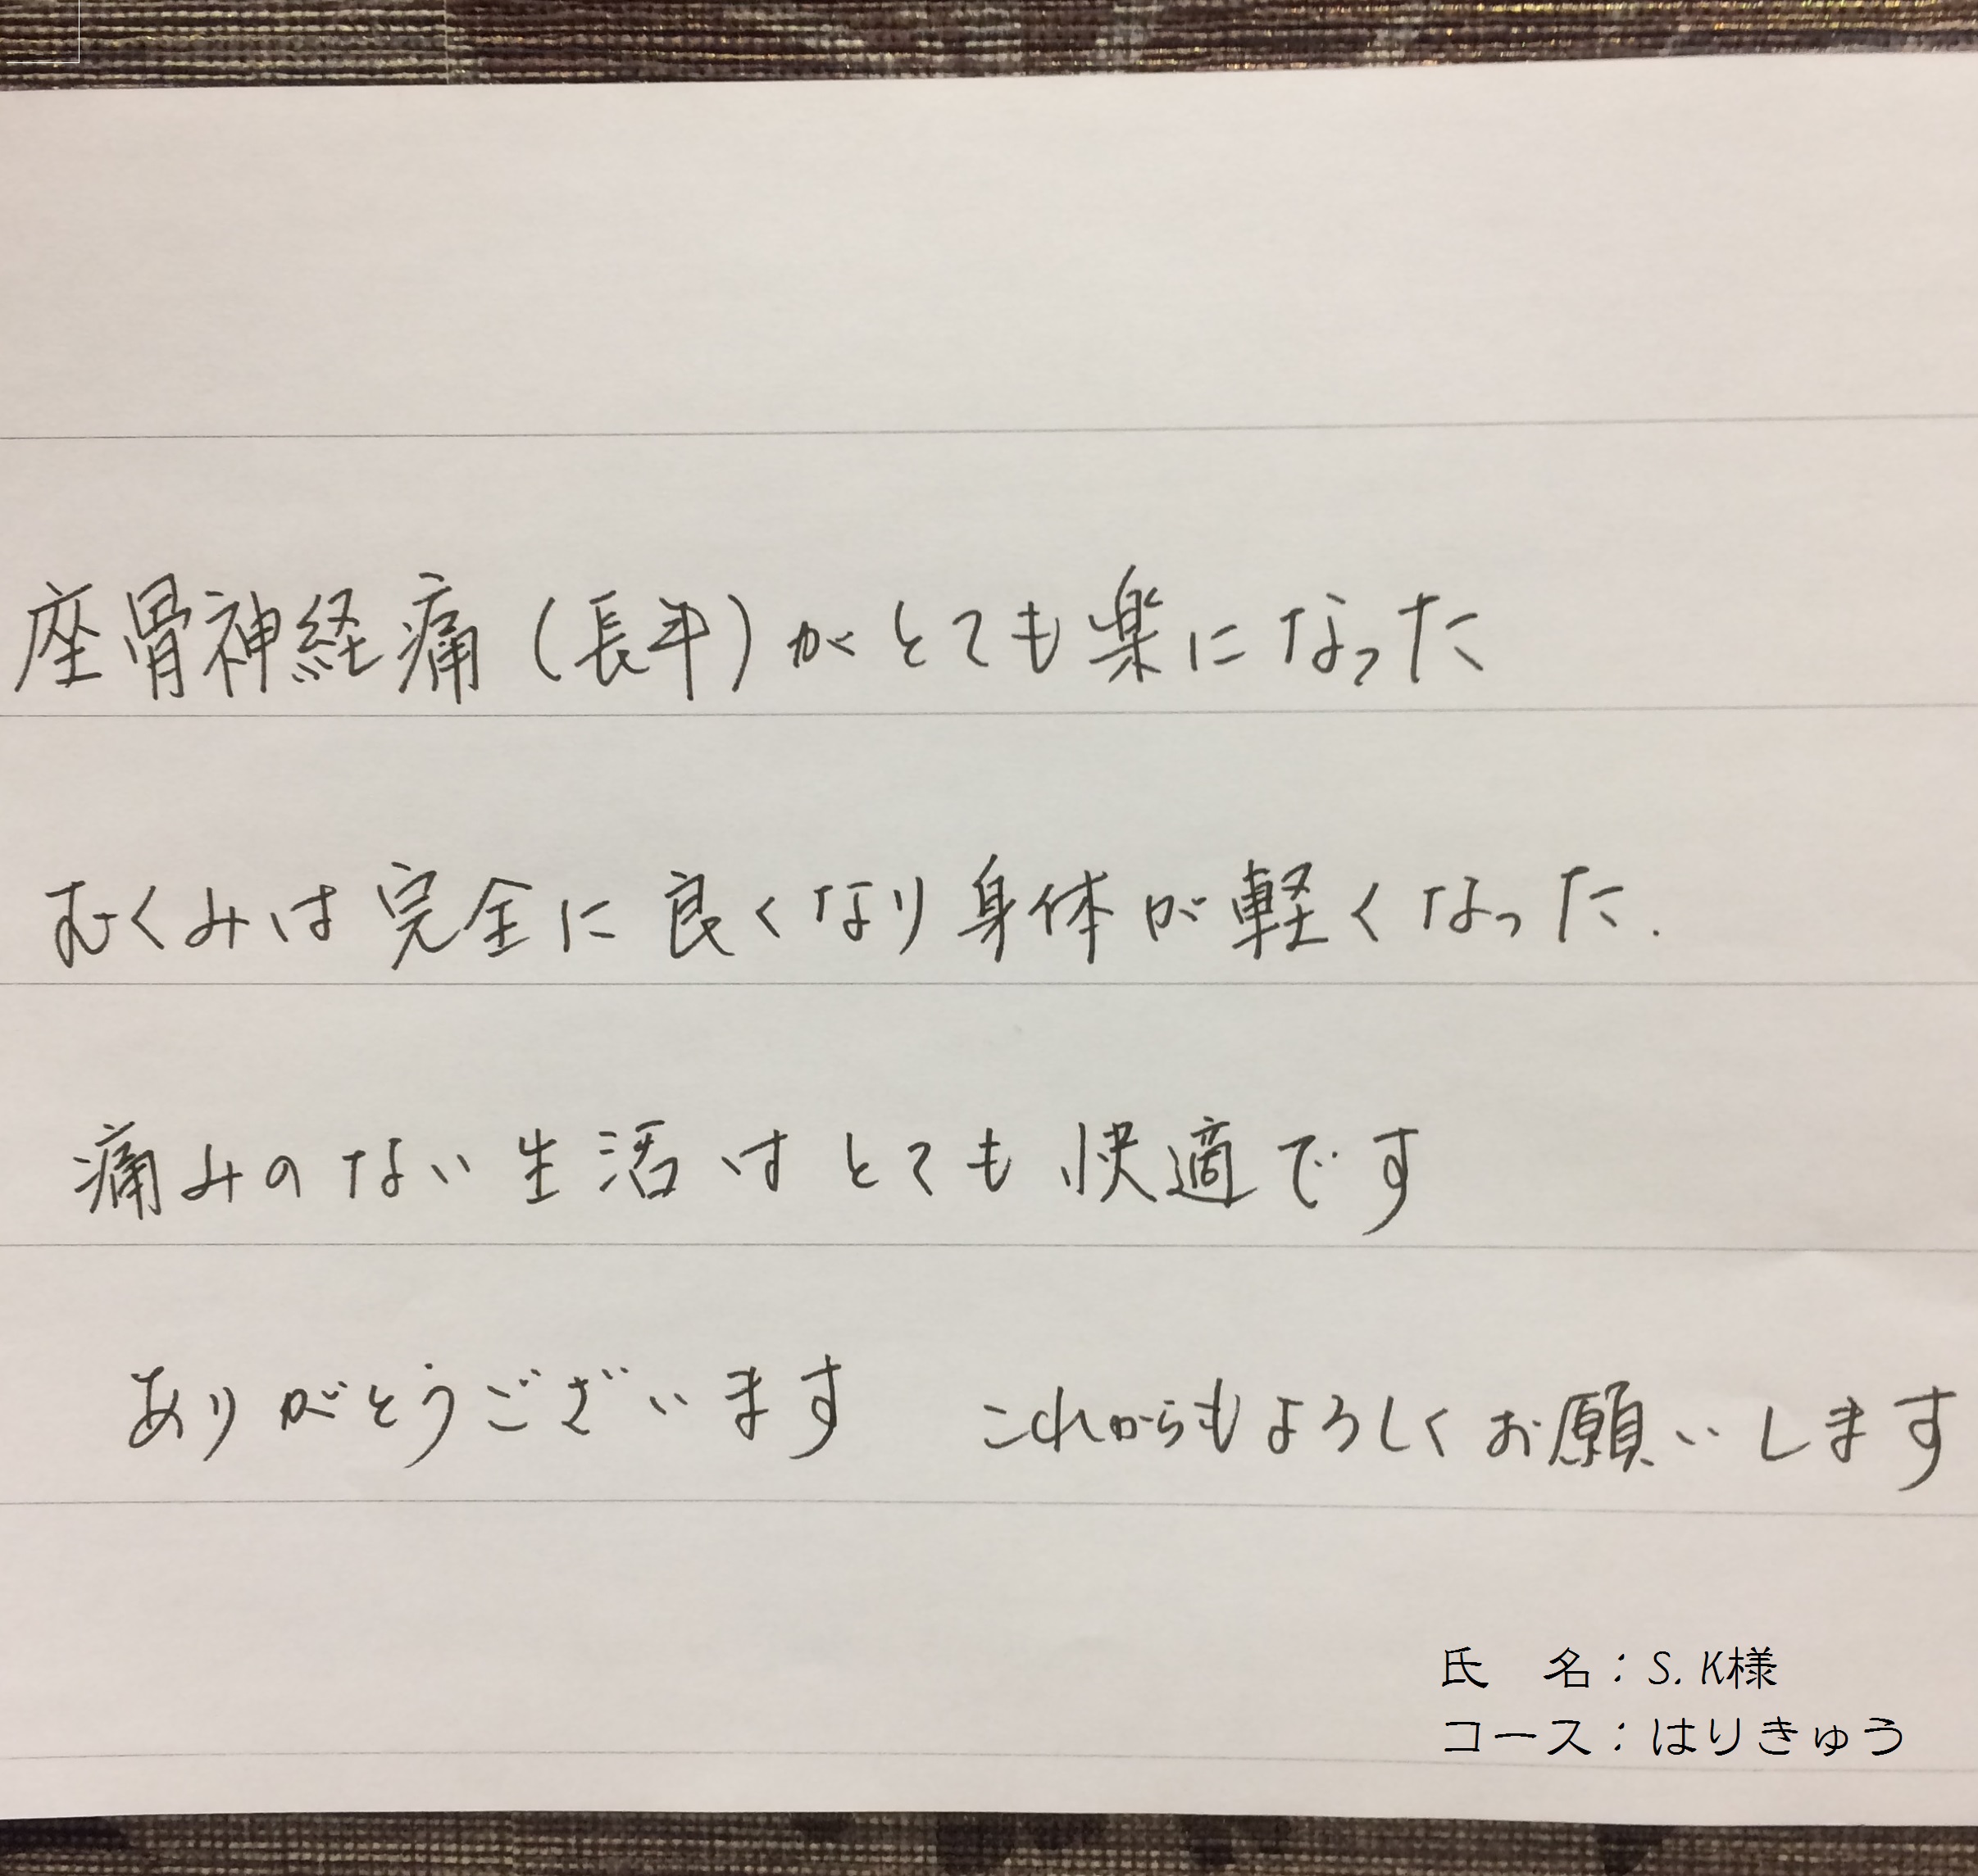 座骨神経痛（長年）がとても楽になった
むくみは完全に良くなり身体が軽くなった.
痛みのない生活はとても快適です
ありがとうございます　これからもよろしくお願いします
氏　名：S.K様
コース：はりきゅう